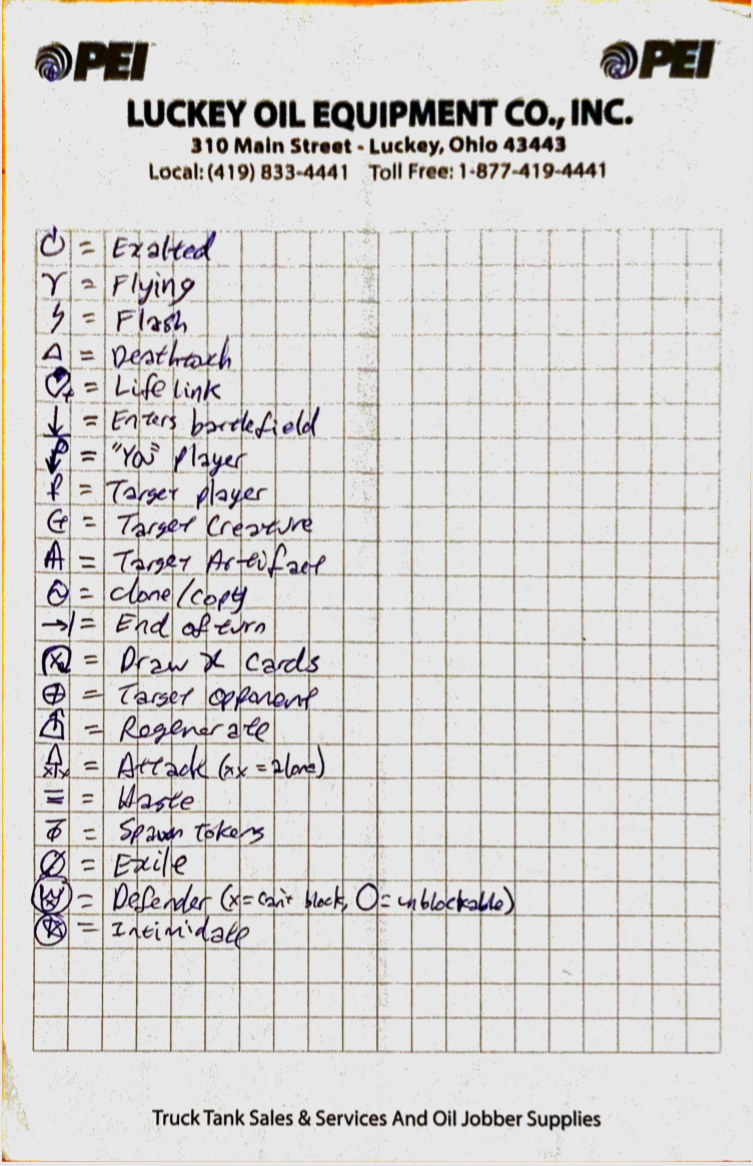 PEI PEI
LUCKEY OIL EQUIPMENT CO., INC.
310 Main Street - Luckey, Ohio 43443
Local: (419) 833-4441 Toll Free: 1-877-419-4441
= Exalted
= Flying
= Flash
= Deathtouch
= Life link
= Enters battlefield
= "You" player
= Target player
= Target Creature
= Target Artifact
= Clone/Copy
→| = End of turn
= Draw X Cards
⊕ = Target opponent
= Regenerate
= Attack (xx = alone)
= = Haste
= Spawn tokens
Ø = Exile
= Defender (x = can't block, O = unblockable)
= Intimidate
Truck Tank Sales & Services And Oil Jobber Supplies